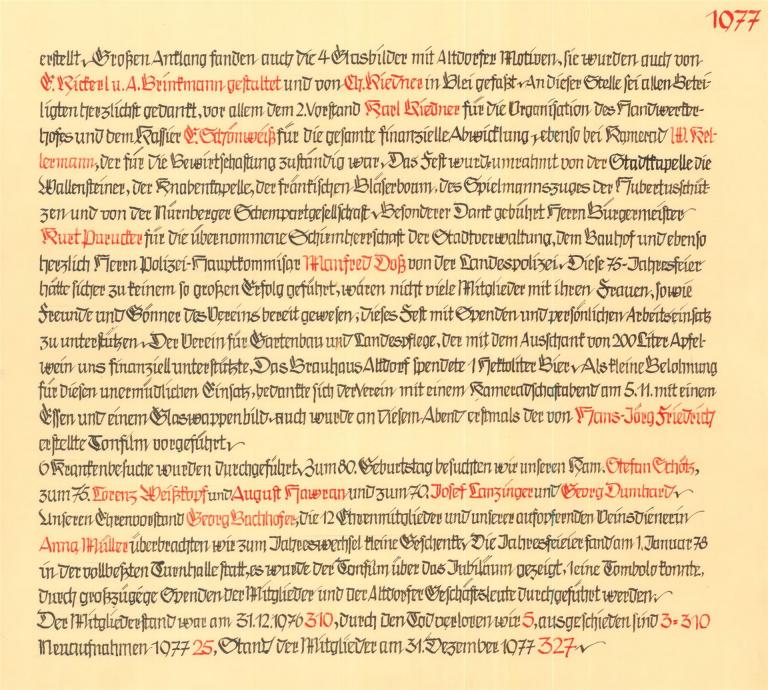 1977
erstellt. Großen Anklang fanden auch die 4 Glasbilder mit Altdorfer Motiven, sie wurden auch von
E. Rickerl u. A. Brinkmann gestaltet und von Ch. Riedner in Blei gefaßt. An dieser Stelle sei allen Betei-
ligten herzlichst gedankt, vor allem dem 2. Vorstand Karl Riedner für die Organisation des Handwerker-
hofes und dem Kassier E. Schönweiß für die gesamte finanzielle Abwicklung, ebenso bei Kamerad W. Kel-
lermann, der für die Bewirtschaftung zuständig war. Das Fest wurde umrahmt von der Stadtkapelle die
Wallensteiner, der Knabenkapelle, der fränkischen Bläserbaum, des Spielmannszuges der Hubertusschüt-
zen und von der Nürnberger Schempartgesellschaft. Besonderer Dank gebührt Herrn Bürgermeister
Kurt Parucker für die übernommene Schirmherrschaft der Stadtverwaltung, dem Bauhof und ebenso
herzlich Herrn Polizei-Hauptkommisar Manfred Doß von der Landespolizei. Diese 75-Jahresfeier
hätte sicher zu keinem so großen Erfolg geführt, wären nicht viele Mitglieder mit ihren Frauen, sowie
Freunde und Gönner des Vereins bereit gewesen, dieses Fest mit Spenden und persönlichen Arbeitseinsatz
zu unterstützen. Der Verein für Gartenbau und Landespflege, der mit dem Ausschank von 200 Liter Apfel-
wein uns finanziell unterstützte, Das Brauhaus Altdorf spendete 1 Hektoliter Bier. Als kleine Belohnung
für diesen unermüdlichen Einsatz, bedankte sich der Verein mit einem Kameradschaftabend am 5.11. mit einem
Essen und einem Glaswappenbild. auch wurde an diesem Abend erstmals der von Hans-Jörg Friedrich
erstellte Tonfilm vorgeführt.
6 Krankenbesuche wurden durchgeführt. Zum 80. Geburtstag besuchten wir unseren Kam. Stefan Schötz,
zum 75. Lorenz Weißkopf und August Hawran und zum 70. Josef Lanzinger und Georg Dumhard.
Unseren Ehrenvorstand Georg Bachhofer, die 12 Ehrenmitglieder und unserer aufopfernden Veinsdienerin
Anna Müller überbrachten wir zum Jahreswechsel kleine Geschenke. Die Jahresfeier fand am 1. Januar 78
in der vollbeßten Turnhalle statt, es wurde der Tonfilm über das Jubiläum gezeigt, eine Tombolo konnte,
durch großzügege Spenden der Mitglieder und der Altdorfer Geschäftsleute durchgeführt werden.
Der Mitgliederstand war am 31.12.1976 310, durch den Tod verloren wir 5, ausgeschieden sind 3 = 310
Neuaufnahmen 1977 25, Stand der Mitglieder am 31. Dezember 1977 327.